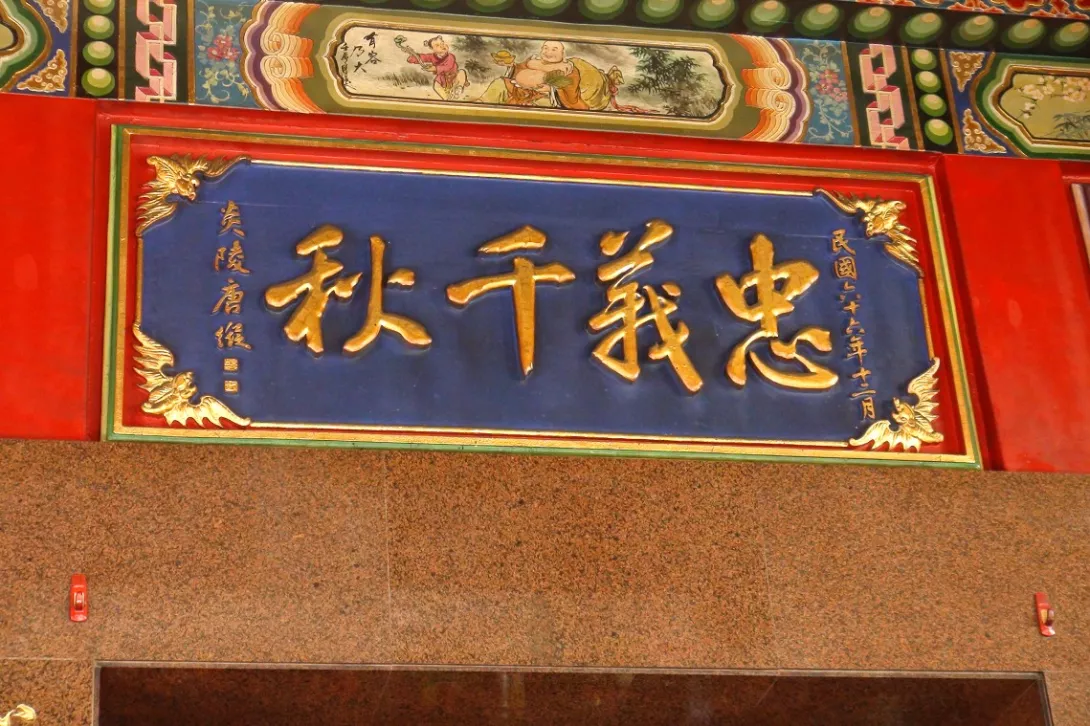 有容
乃大
忠義千秋
民國六十六年十二月
炎陵唐緱